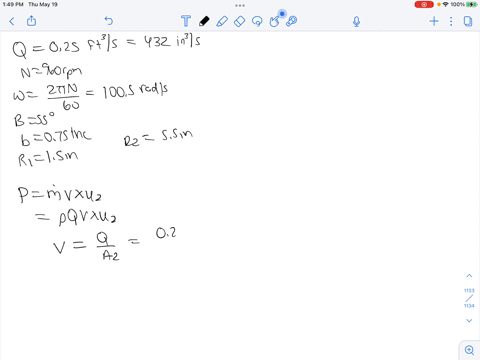 1:49 PM Thu May 19
100%
Q = 0.25 ft³/s = 432 in³/s
N=960rpm
ω = 2πN/60 = 100.5 rad/s
B=55°
b=0.75inc R2 = 5.5in
R1=1.5in
P = ṁ v × u₂
= ρQV×u₂
V = Q/A₂ = 0.2
1133
/
1134